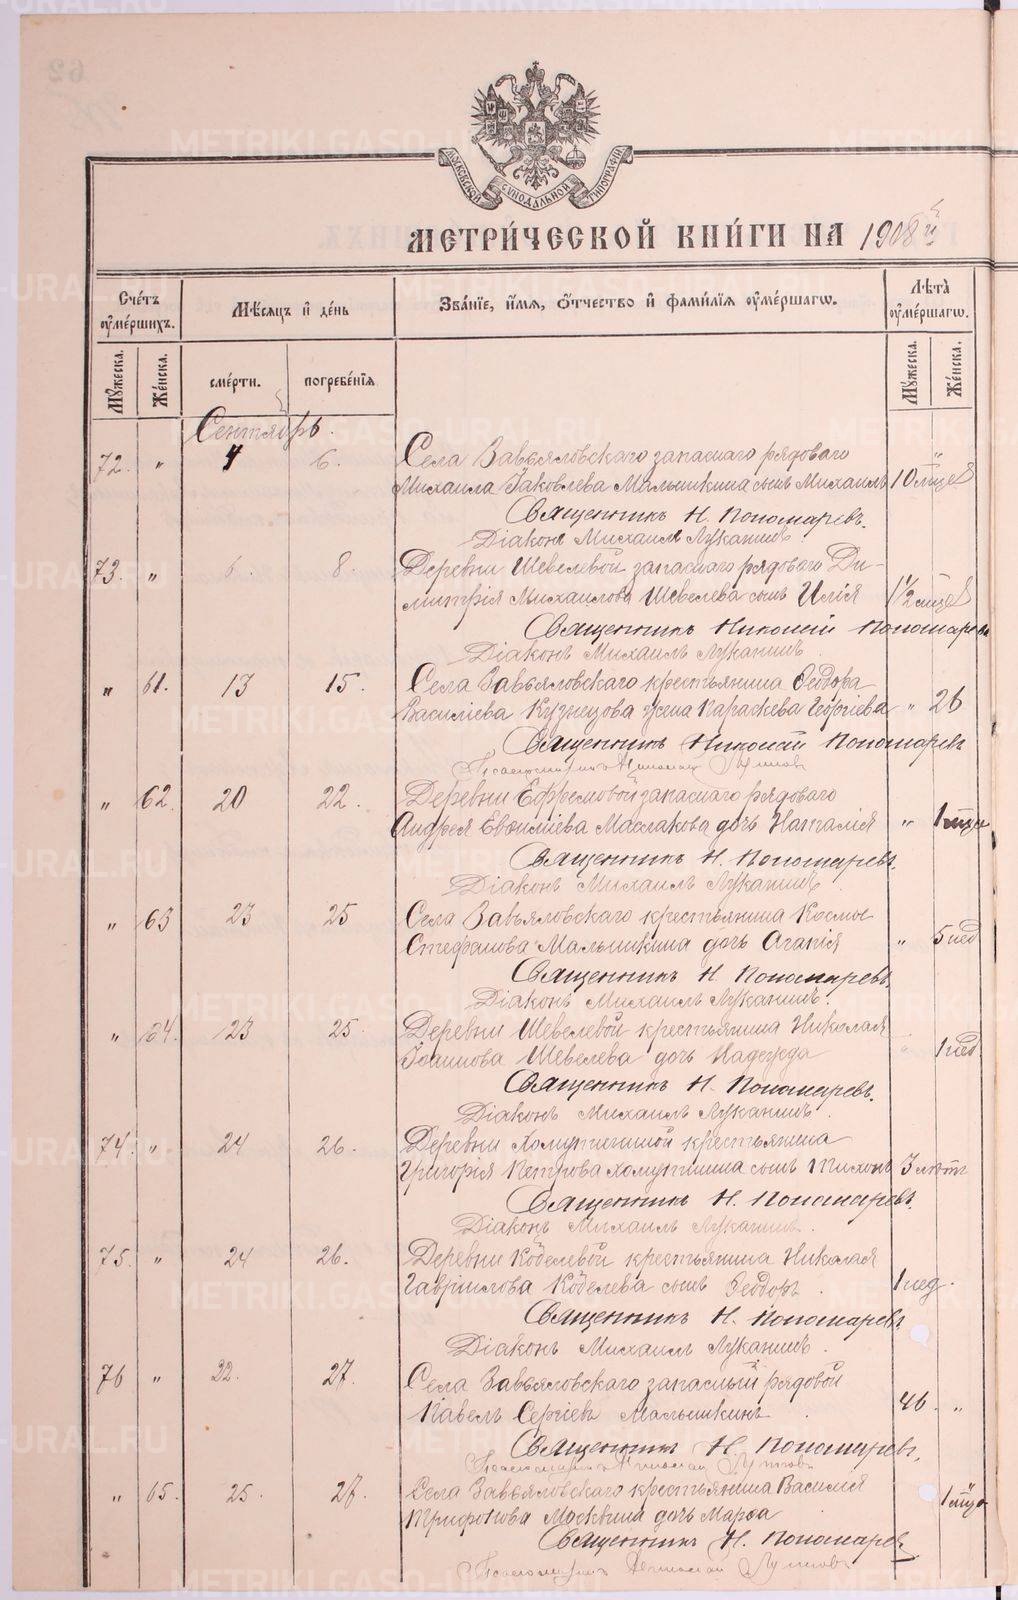 МОСКОВСКОЙ СѴНОДАЛЬНОЙ ТИПОГРАФІИ
МЕТРИ́ЧЕСКОЙ КНИ́ГИ НА 1908й
Сче́тъ ᲂу҆ме́ршихъ.
Мѣ́сяцъ и҆ де́нь
Зва́нїе, и҆́мѧ, ѻ҆́тчество и҆ фами́лїѧ ᲂу҆ме́ршагѡ.
Лѣ́та ᲂу҆ме́ршагѡ.
Мꙋ́жеска.
Же́нска.
сме́рти.
погребе́нїѧ
Мꙋ́жеска.
Же́нска.
Сентябрь.
72. " 4 6. Села Завьяловскаго запаснаго рядоваго "
Михаила Іаковлева Малышкина сынъ Михаилъ 10 мцев
Священникъ Н. Пономаревъ.
Діаконъ Михаилъ Луканинъ
73. " 6. 8. Деревни Шевелевой запаснаго рядоваго Ди-
митрія Михаилова Шевелева сынъ Илія 1 1/2 мцев
Священникъ Николай Пономаревъ
Діаконъ Михаилъ Луканинъ.
" 61. 13 15. Села Завьяловскаго крестьянина Ѳеодора
Василіева Кузнецова жена Параскева Георгіева " 26
Священникъ Николай Пономаревъ
Псаломщикъ Николай
" 62. 20 22. Деревни Ефремовой запаснаго рядоваго
Андрея Маслакова дочь Наталія " 1 мцъ
Священникъ Н. Пономаревъ.
Діаконъ Михаилъ Луканинъ.
" 63 23 25 Села Завьяловскаго крестьянина Космы
Стефанова Малышкина дочь Агапія " 5 нед
Священникъ Н. Пономаревъ.
Діаконъ Михаилъ Луканинъ.
" 64. 23 25. Деревни Шевелевой крестьянина Николая
Іоаннова Шевелева дочь Надежда " 1 нед.
Священникъ Н. Пономаревъ.
Діаконъ Михаилъ Луканинъ.
74. " 24 26. Деревни крестьянина
Григорія Петрова Хомутинина сынъ Тихонъ 3 лѣтъ
Священникъ Н. Пономаревъ.
Діаконъ Михаилъ Луканинъ.
75. " 24 26. Деревни Кобелевой крестьянина Николая
Гавріилова Кобелева сынъ Ѳеодоръ. 1 нед.
Священникъ Н. Пономаревъ.
Діаконъ Михаилъ Луканинъ.
76 " 22. 27. Села Завьяловскаго запасный рядовой
Павелъ Сергіевъ Малышкинъ. 46. "
Священникъ Н. Пономаревъ.
Псаломщикъ Николай
" 65. 25. 27. Села Завьяловскаго крестьянина Василія "
Трифонова Москвина дочь Марѳа 1 мцъ
Священникъ Н. Пономаревъ.
Псаломщикъ Николай
METRIKI.GASO-URAL.RU